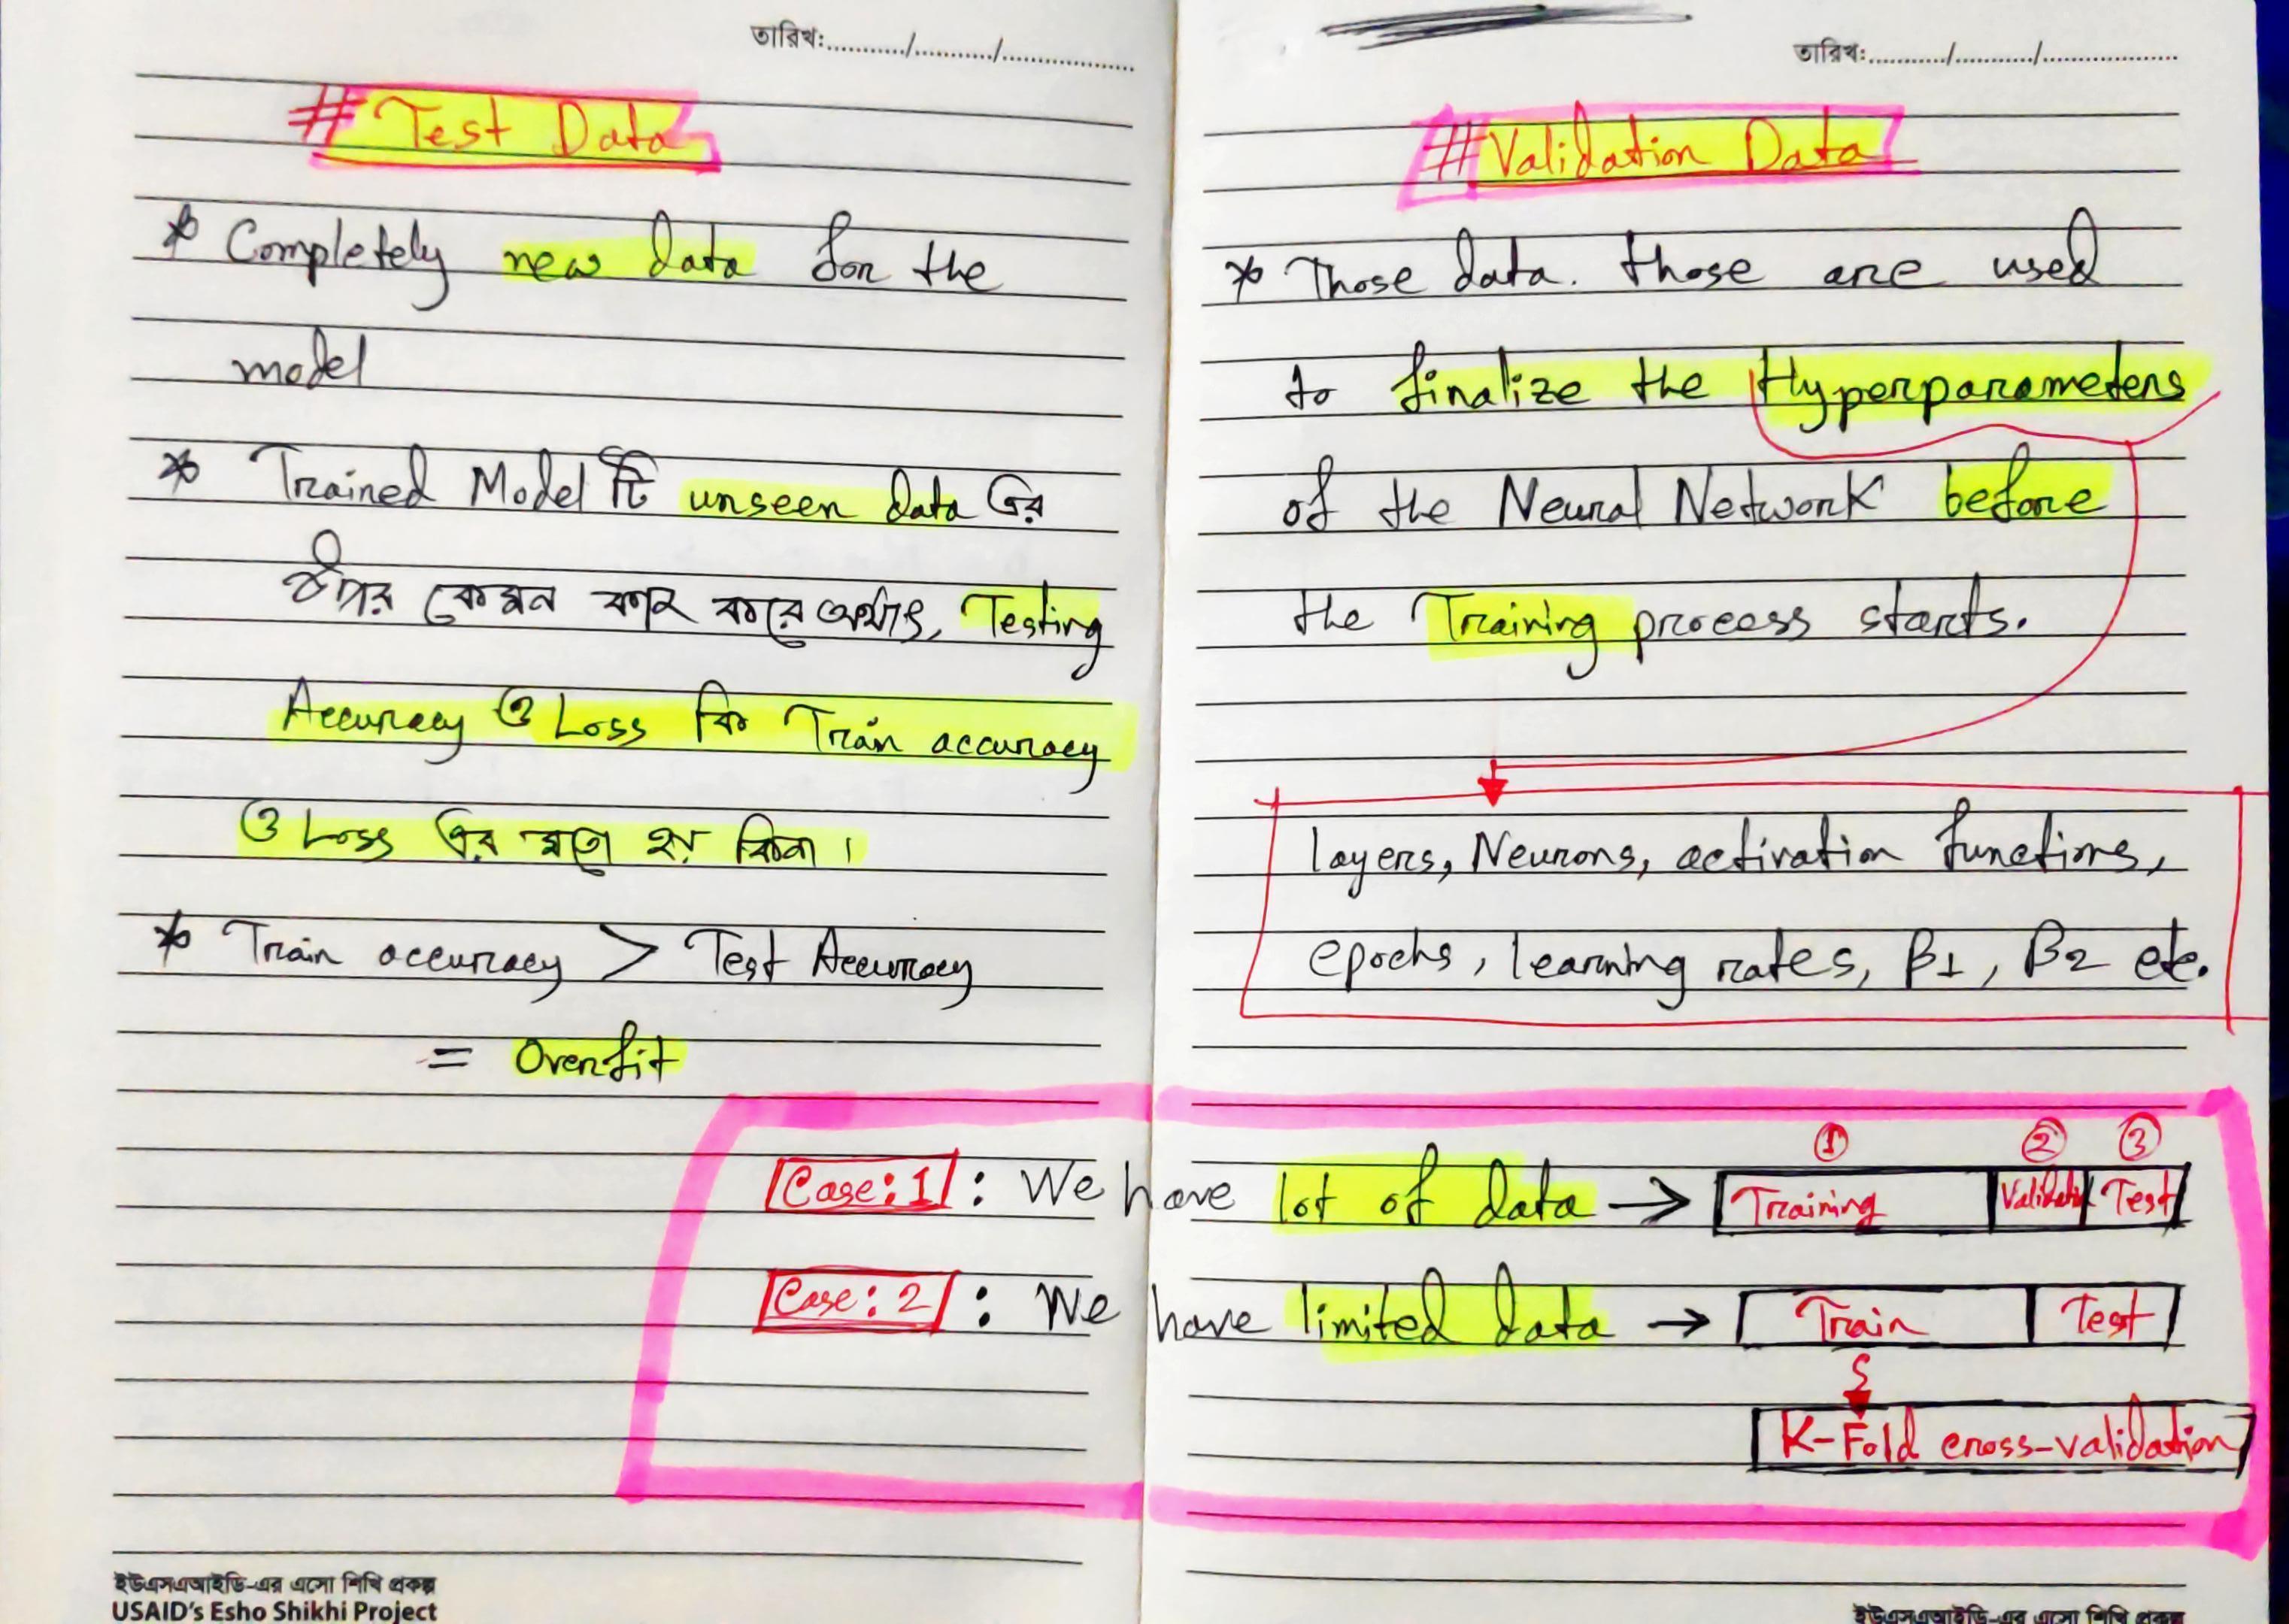 তারিখ:.........../.........../...................
# Test Data
* Completely new data for the
model
* Trained Model টি unseen data এর
উপর কেমন কাজ করে অর্থাৎ, Testing
Accuracy ও Loss কি Train accuracy
ও Loss এর মতো হয় কিনা।
* Train accuracy > Test Accuracy
= Overfit
তারিখ:.........../.........../...................
# Validation Data
* Those data. those are used
to finalize the Hyperparameters
of the Neural Network before
the Training process starts.
layers, Neurons, activation functions,
epochs, learning rates, β1, β2 etc.
① ② ③
Case: 1 : We have lot of data → Training Validatn Test
Case: 2 : We have limited data → Train Test
K-Fold cross-validation
ইউএসএআইডি-এর এসো শিখি প্রকল্প
USAID's Esho Shikhi Project
ইউএসএআইডি-এর এসো শিখি প্রকল্প